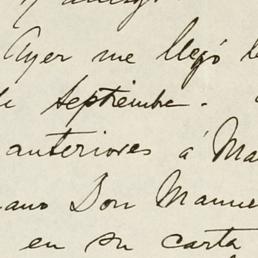 y amigo
Ayer me llegó
de septiembre.
anteriores á Ma
ano Don Manue
en su carta